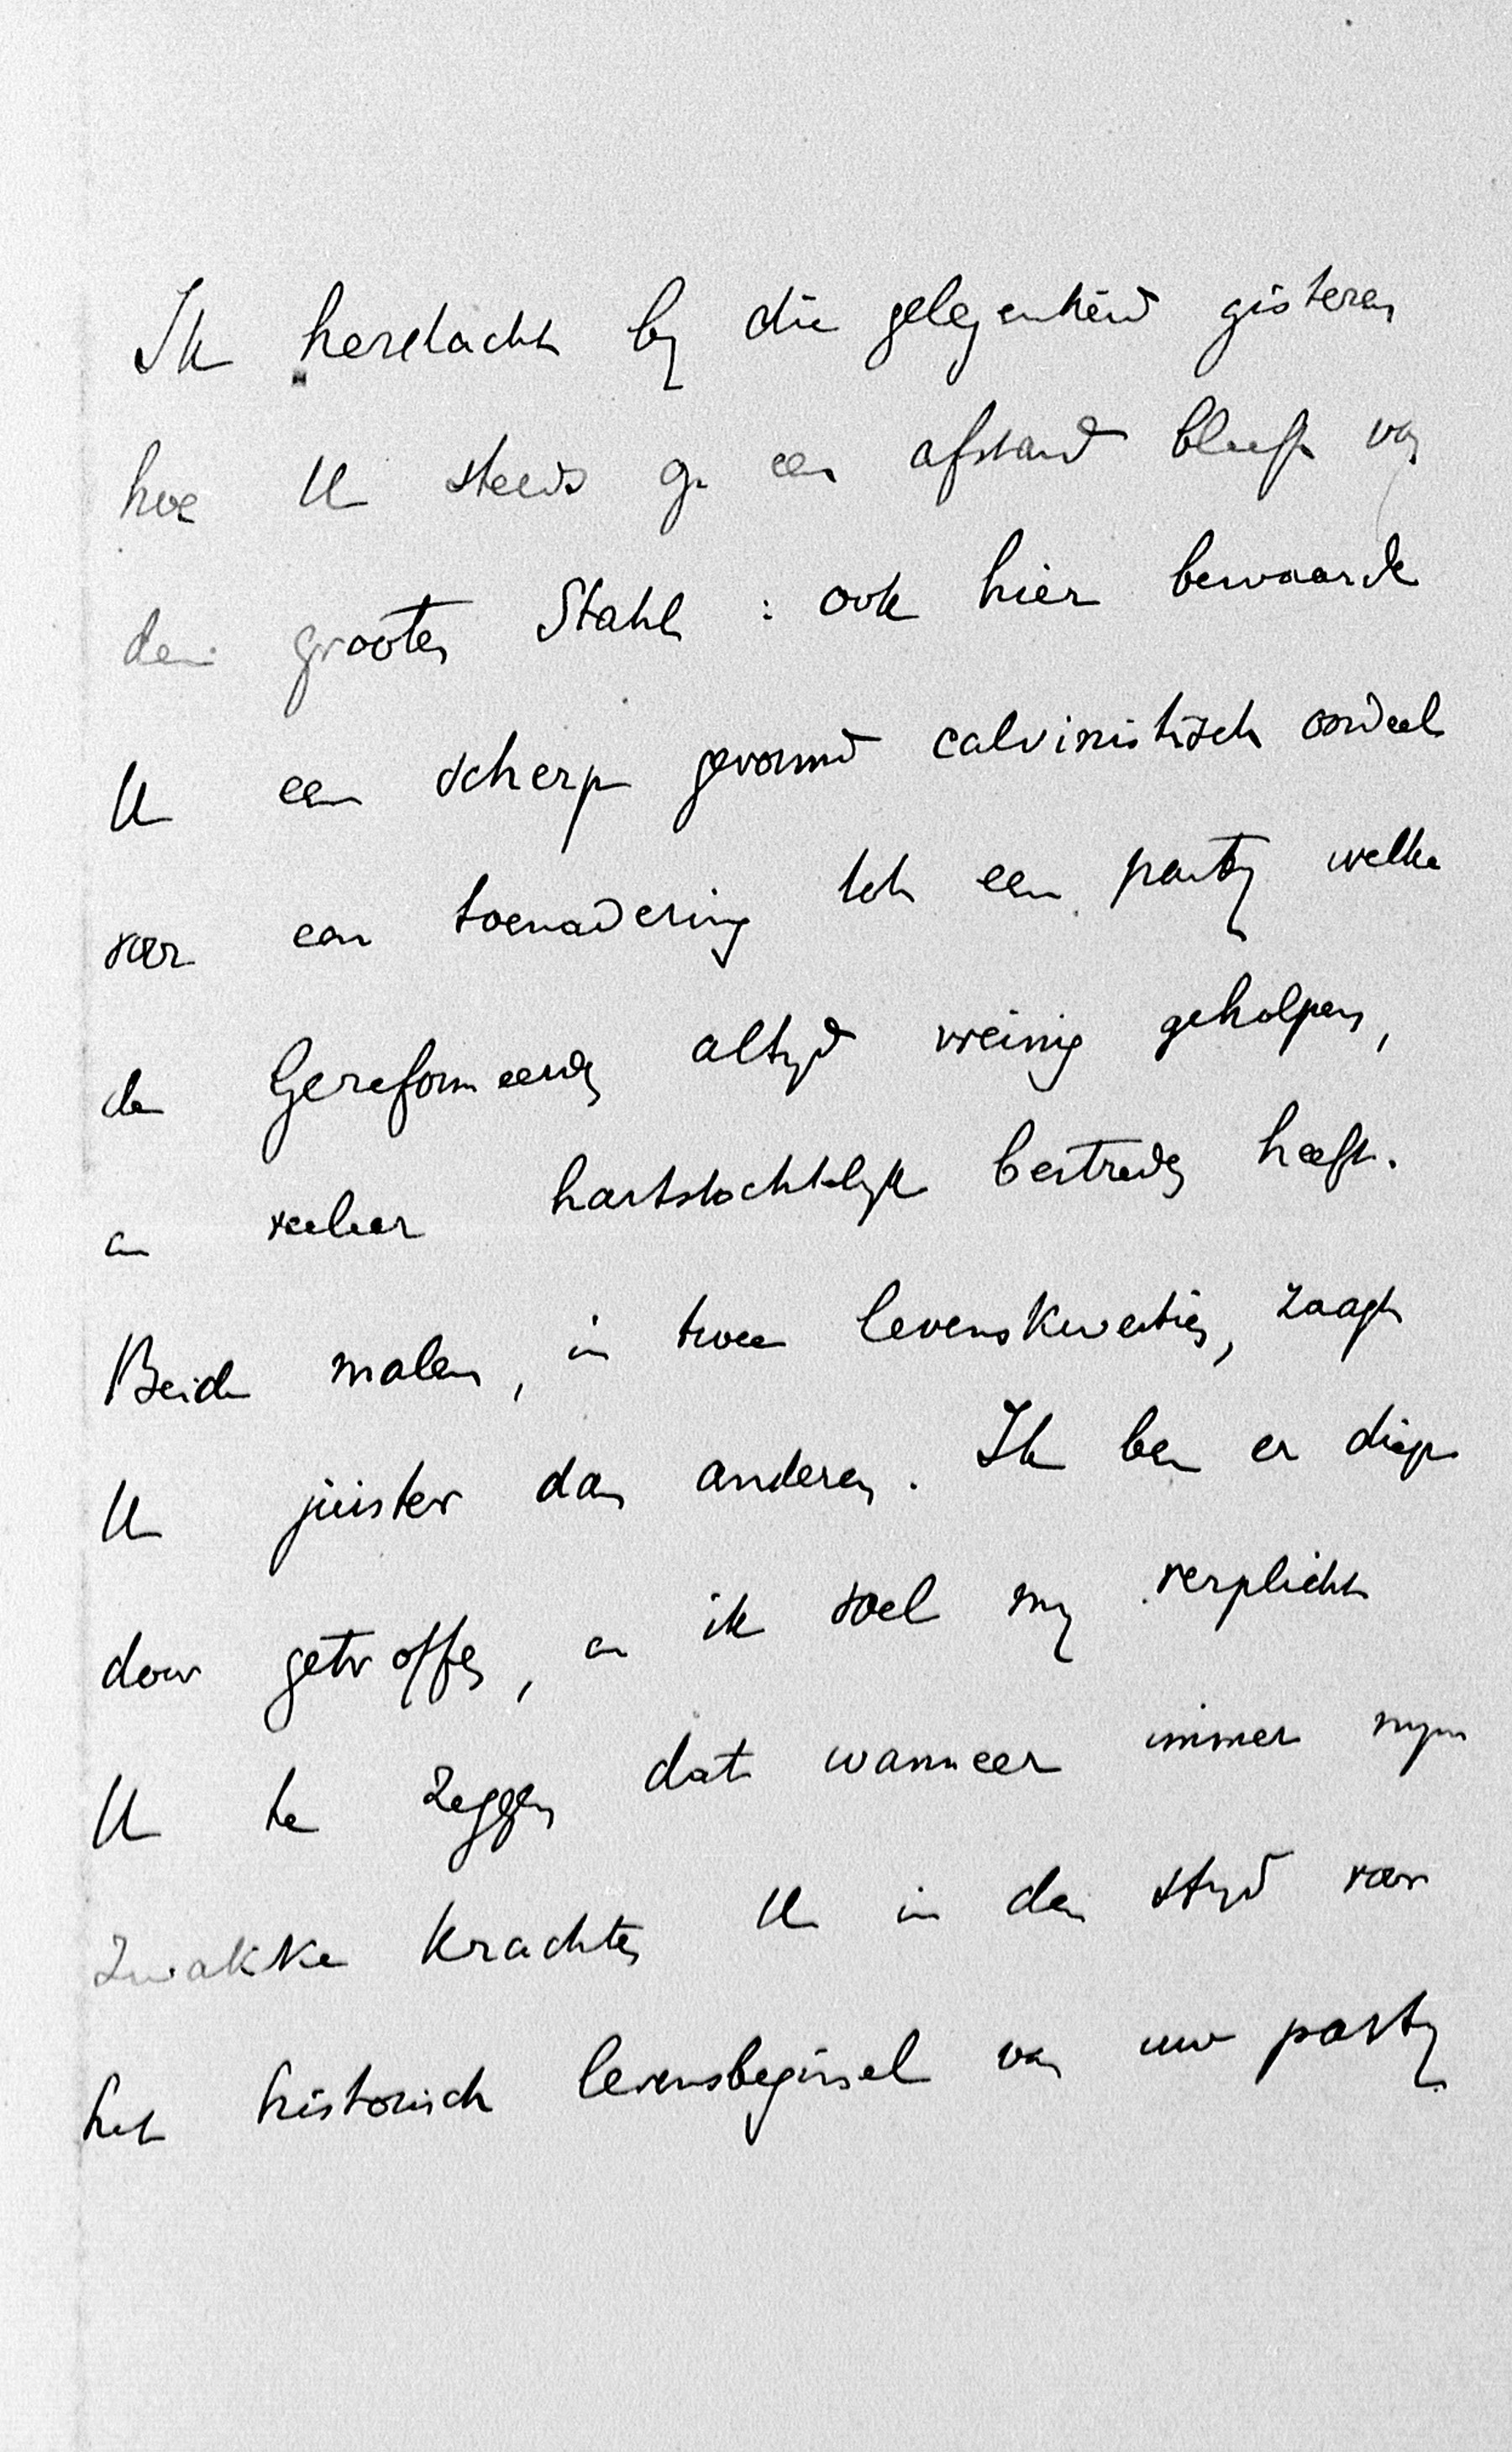 Ik herdacht by die gelegenheid gisteren
hoe U steeds op een afstand bleeft van
den grooten Stahl : ook hier bewaarde
U een scherp gevormd calvinistisch oordeel
voor een toenadering tot een party welke
de Gereformeerden altyd weinig geholpen,
en veeleer hartstochtelyk bestreden heeft.
Beide malen, in twee levenskwesties, zaagt
U juister dan anderen. Ik ben er diep
door getroffen, en ik voel my verplicht
U te zeggen dat wanneer immer myn
zwakke krachten U in den stryd voor
het historisch levensbeginsel van uw party